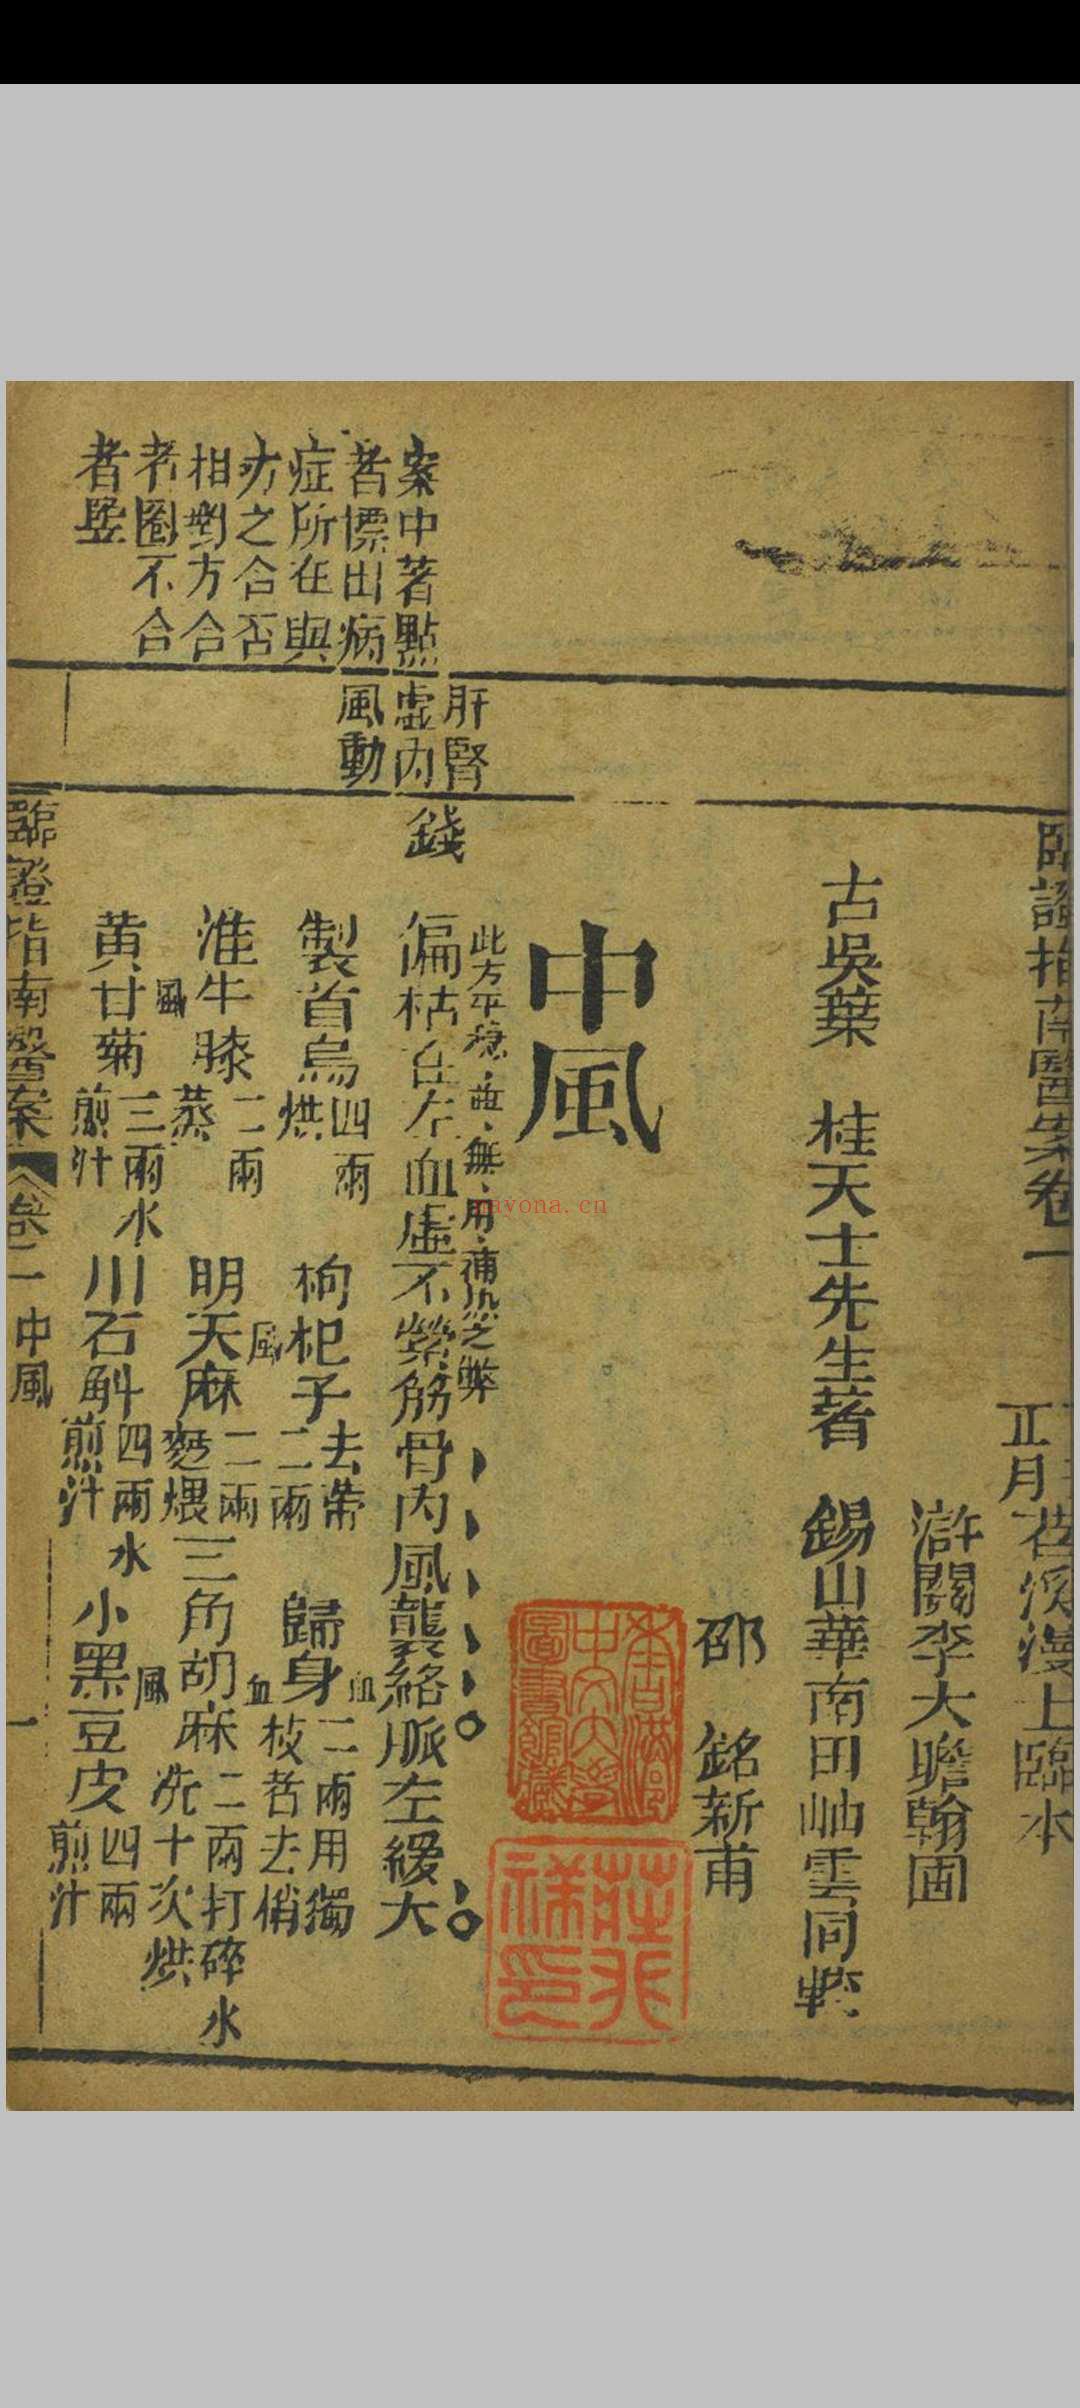 臨證指南醫案卷一
正月苕溪漫士臨本
滸關李大瞻翰圃
古吳葉 桂天士先生著 錫山華南田岫雲同較
邵 銘新甫
中風
案中著點
者標出病
症所在與
方之合否
相對方合
者圈不合
者竪
肝腎
虛內
風動
錢
此方平穩並無用補澁之弊
偏枯在左血虛不縈筋骨內風襲絡脈左緩大
製首烏四兩烘 枸杞子去蒂二兩 歸身二兩用獨枝者去梢
血
風
血
淮牛膝二兩蒸 明天麻二兩麪煨 三角胡麻二兩打碎水洗十次烘
風
風
黃甘菊三兩水煎汁 川石斛四兩水煎汁 小黑豆皮四兩煎汁
臨證指南醫案 卷一 中風 一
香港
中文大學
圖書館藏
nayona.cn